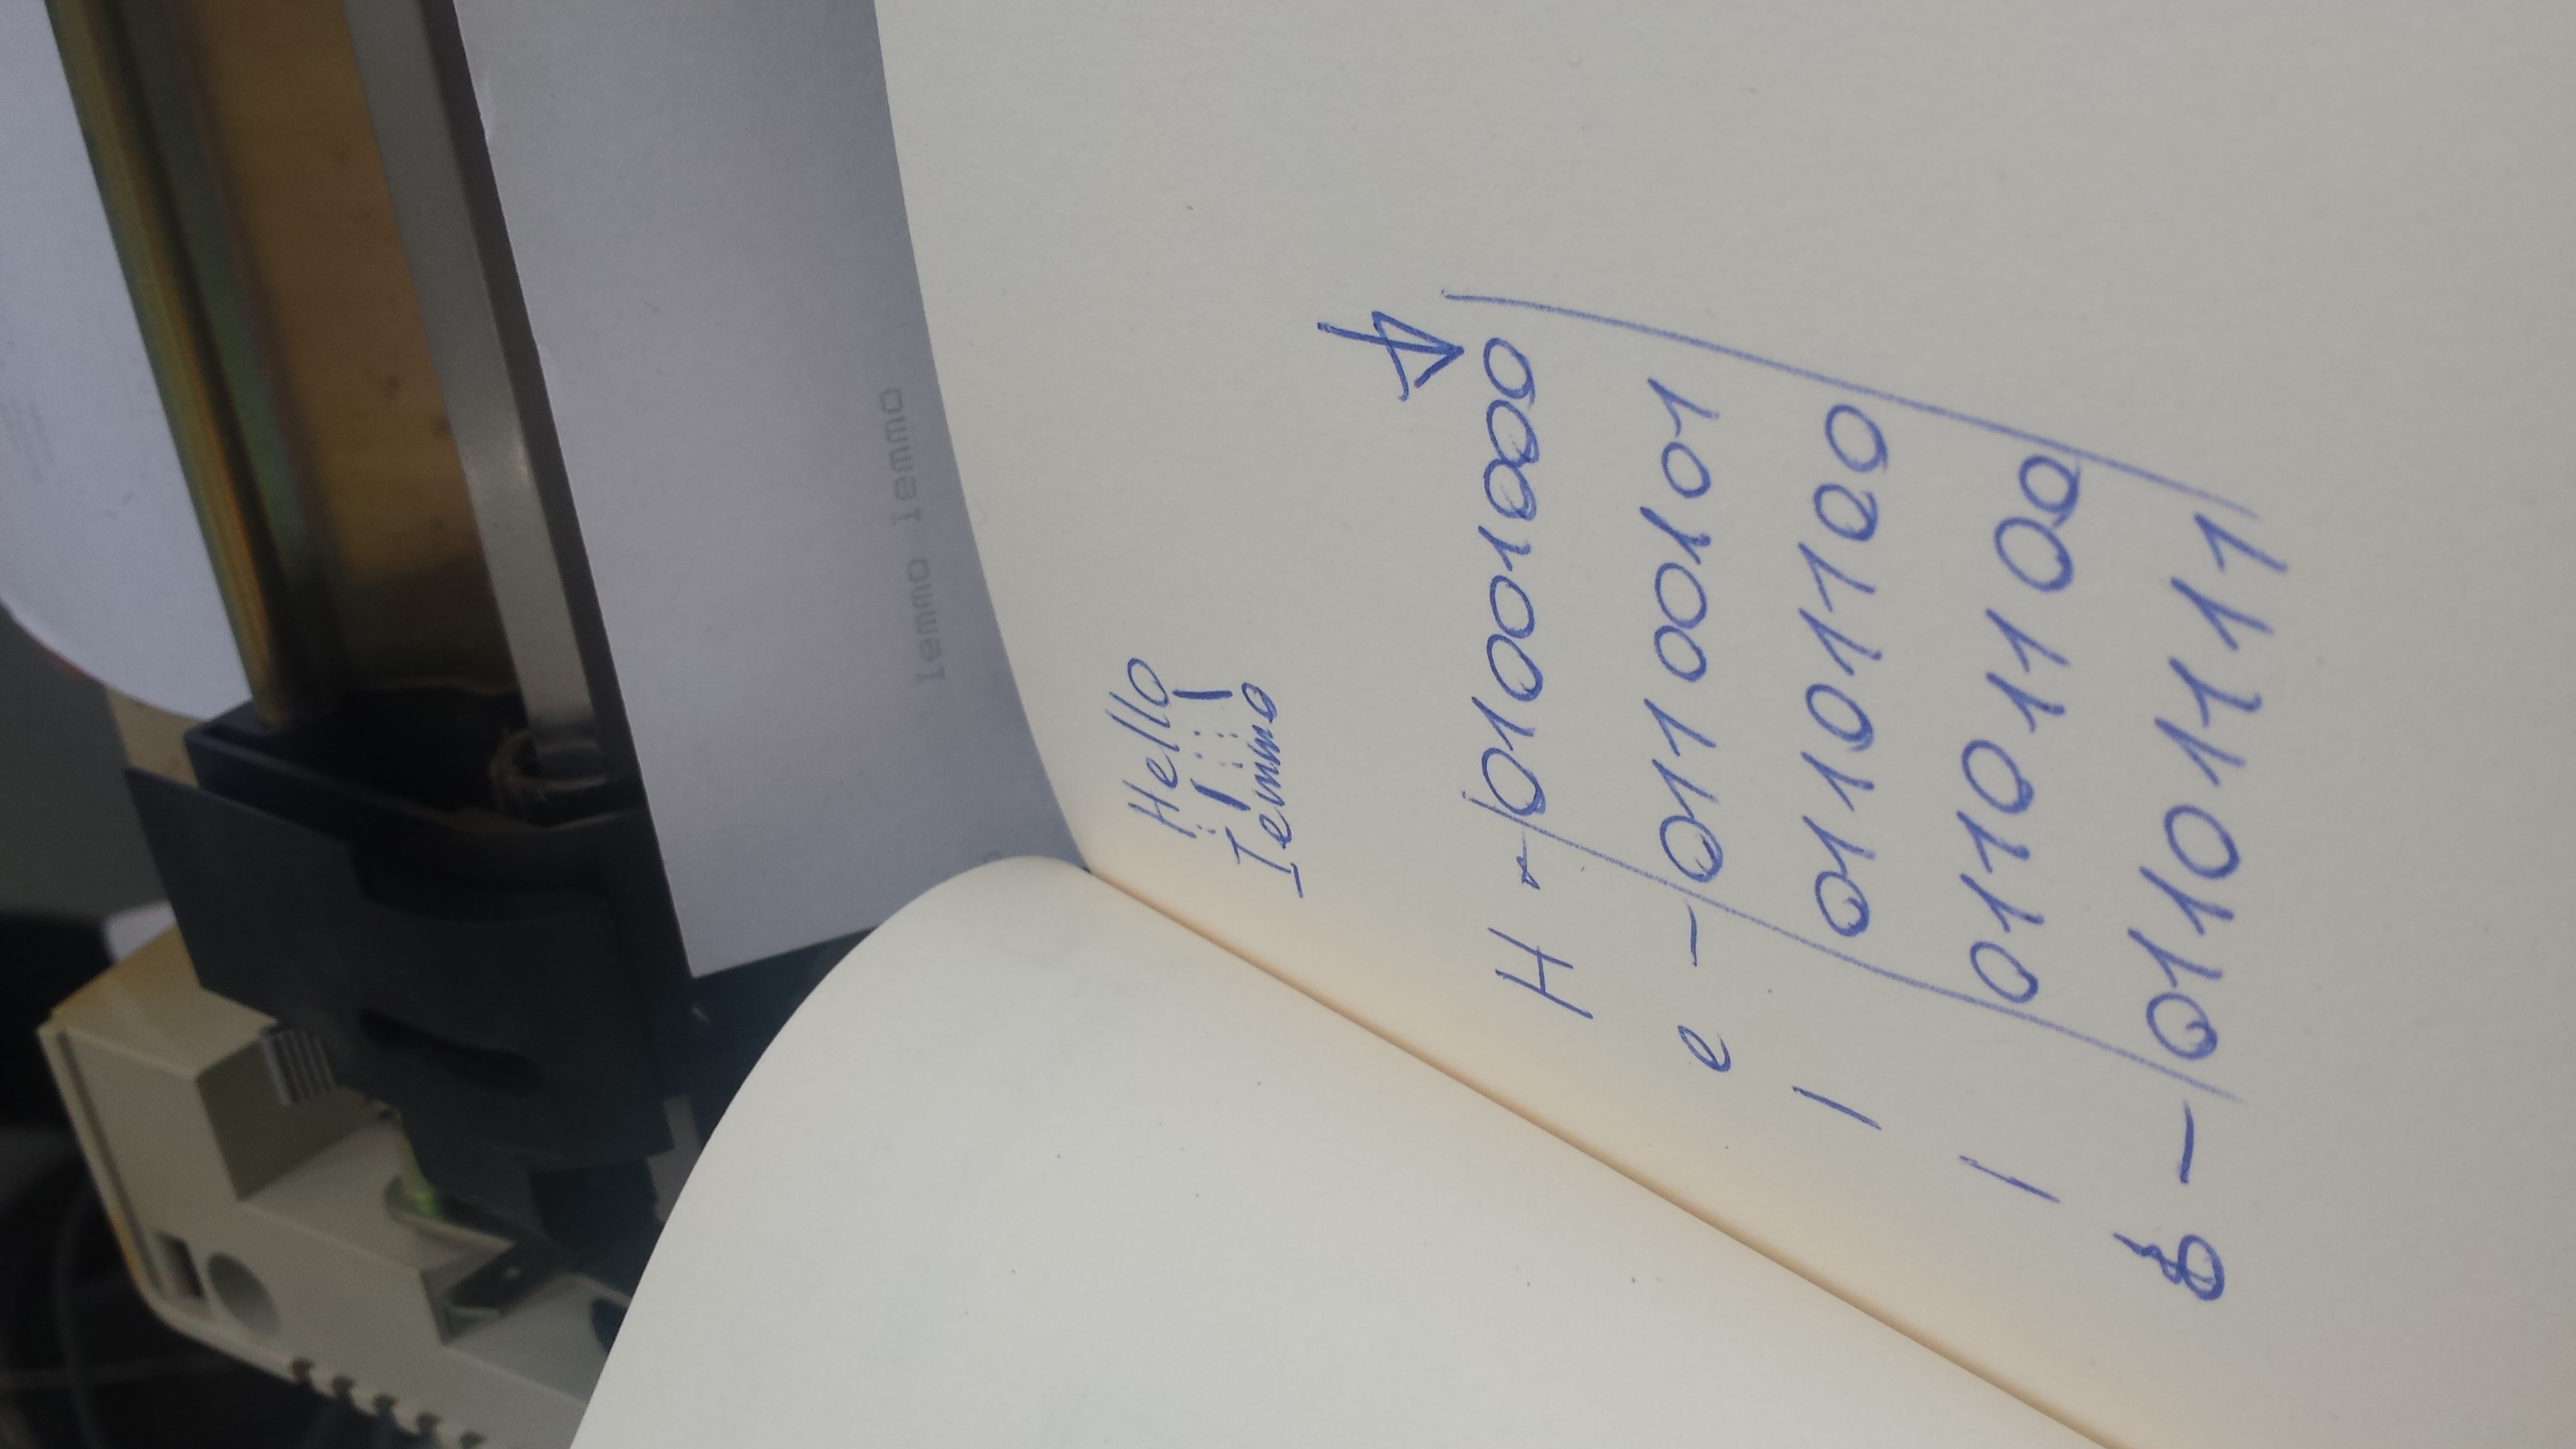 Iemmo Iemmo
Hello
Iemmo
H - 01001000
e - 01100101
l 01101100
l 01101100
o - 01101111